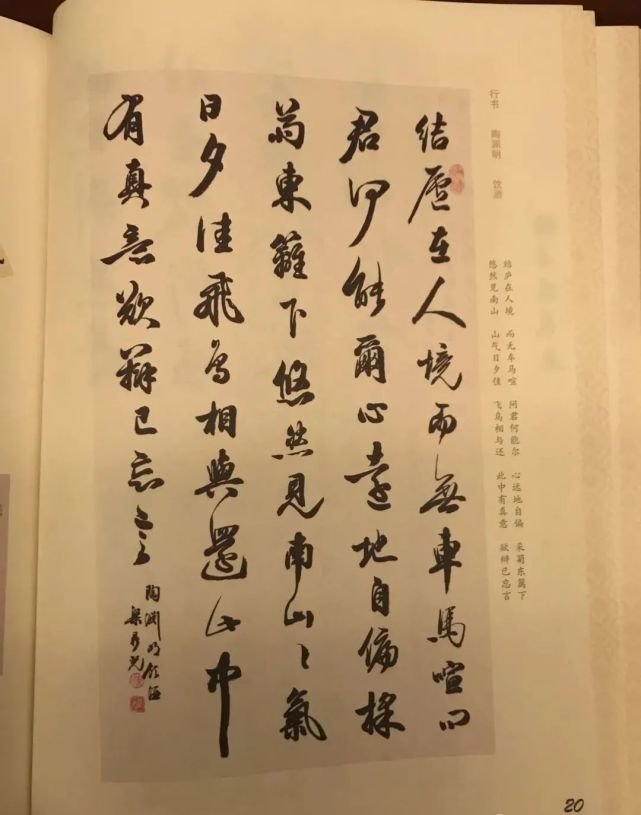 行书 陶渊明 饮酒
结庐在人境 而无车马喧 问君何能尔 心远地自偏 采菊东篱下
悠然见南山 山气日夕佳 飞鸟相与还 此中有真意 欲辩已忘言
結廬在人境而無車馬喧問
君何能爾心遠地自偏採
菊東籬下悠然見南山〻氣
日夕佳飛鳥相與還此中
有真意欲辯已忘言
陶淵明飲酒
20